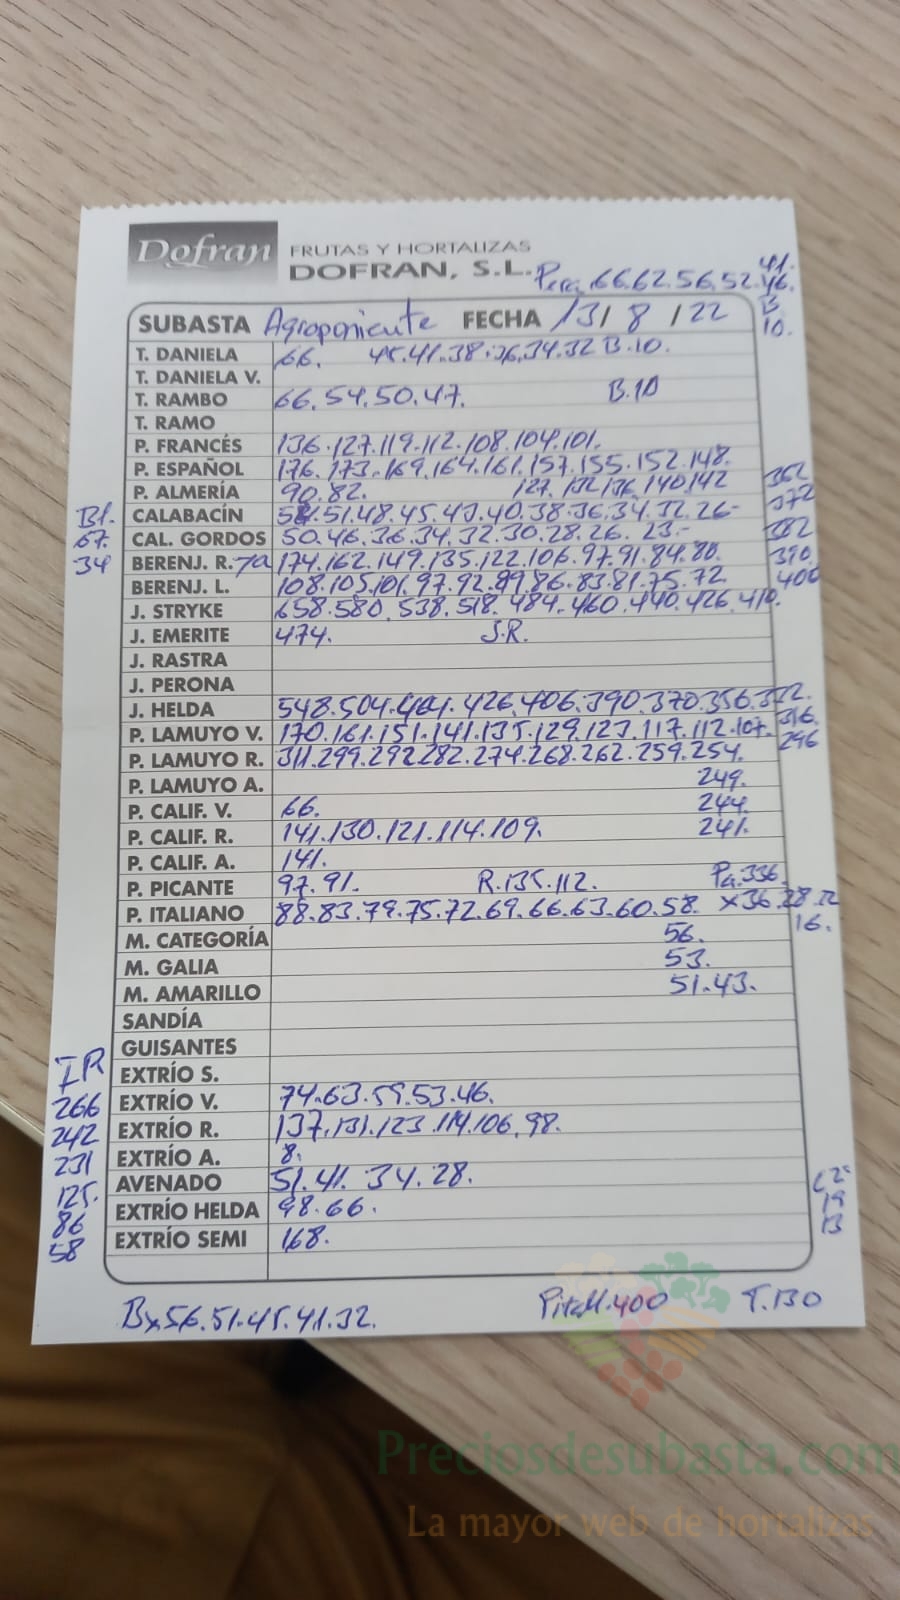 Dofran FRUTAS Y HORTALIZAS
DOFRAN, S.L. Pera, 66.62.56.52.46.
41.
B.
10.
SUBASTA Agroponiente FECHA 13/8/22
T. DANIELA 66. 45.41.38.36.34.32 B.10.
T. DANIELA V.
T. RAMBO 66.54.50.47. B.10
T. RAMO
P. FRANCÉS 136.127.119.112.108.104.101.
P. ESPAÑOL 176.173.169.164.161.157.155.152.148.
P. ALMERÍA 90.82. 127.132.136.140.142
362
Bl. CALABACÍN 51.48.45.43.40.38.36.34.32.26-
372
67. CAL. GORDOS 50.46.36.34.32.30.28.26. 23.-
382
34 BERENJ. R. 7a 174.162.149.135.122.106.97.91.84.80.
390
BERENJ. L. 108.105.101.97.92.89.86.83.81.75.72.
400
J. STRYKE 658.580.538.518.484.460.440.426.410.
J. EMERITE 474. S.R.
J. RASTRA
J. PERONA
J. HELDA 548.504.464.426.406.390.370.356.332.
316.
P. LAMUYO V. 170.161.151.141.135.129.123.117.112.107.
296
P. LAMUYO R. 311.299.292.282.274.268.262.259.254.
P. LAMUYO A. 249.
P. CALIF. V. 66. 244.
P. CALIF. R. 141.130.121.114.109. 241.
P. CALIF. A. 141.
P. PICANTE 97.91. R.135.112. Pa.336.
P. ITALIANO 88.83.79.75.72.69.66.63.60.58. x36.28.22
16.
M. CATEGORÍA 56.
M. GALIA 53.
M. AMARILLO 51.43.
SANDÍA
GUISANTES
IR EXTRÍO S.
266 EXTRÍO V. 74.63.59.53.46.
242 EXTRÍO R. 137.131.123.114.106.98.
231 EXTRÍO A. 8.
125. AVENADO 51.41. 34.28.
86 EXTRÍO HELDA 98.66. 19
58 EXTRÍO SEMI 168. 13
Bx56.51.45.41.32. 400 T.130
Preciosdesubasta.com
La mayor web de hortalizas